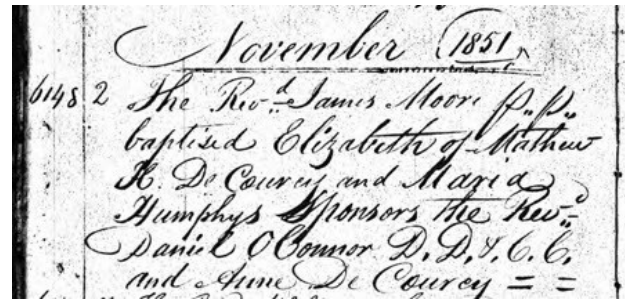 November 1851
6148 2 The Revd. James Moore P.P.
baptised Elizabeth of Mathew
H. De Courcy and Maria
Humphys Sponsors the Revd.
Daniel O'Connor D.D. & C.C.
and Anne De Courcy = =